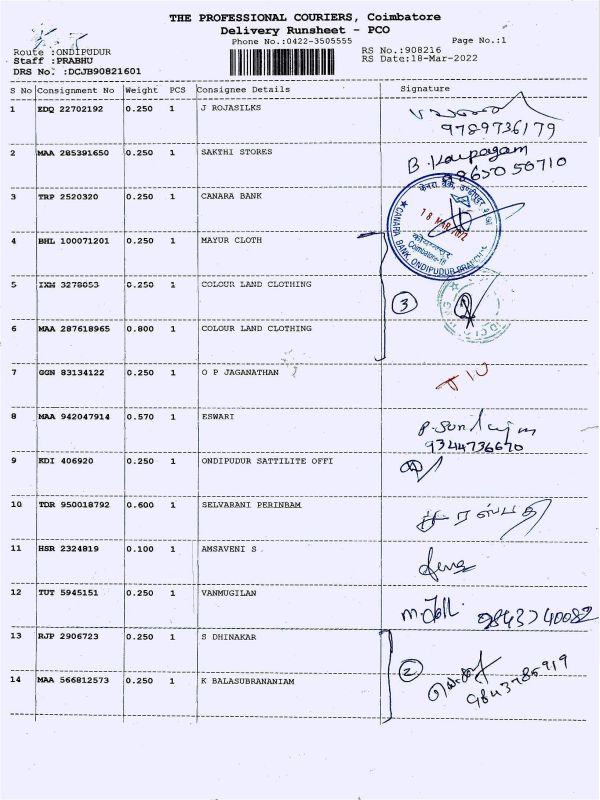 THE PROFESSIONAL COURIERS, Coimbatore
Delivery Runsheet - PCO
Phone No.:0422-3505555 Page No.:1
Route :ONDIPUDUR RS No.:908216
Staff :PRABHU RS Date:18-Mar-2022
DRS No. :DCJB90821601
S No Consignment No Weight PCS Consignee Details Signature
1 EDQ 22702192 0.250 1 J ROJASILKS
9789736179
2 MAA 285391650 0.250 1 SAKTHI STORES B. Karpagam
98650 50710
3 TRP 2520320 0.250 1 CANARA BANK
CANARA BANK, ONDIPUDUR BRANCH
18 MAR 2022
Coimbatore-16
4 BHL 100071201 0.250 1 MAYUR CLOTH
5 IXM 3278053 0.250 1 COLOUR LAND CLOTHING 3
6 MAA 287618965 0.800 1 COLOUR LAND CLOTHING
7 GGN 83134122 0.250 1 O P JAGANATHAN
8 MAA 942047914 0.570 1 ESWARI
9344736670
9 KDI 406920 0.250 1 ONDIPUDUR SATTILITE OFFI
10 TDR 950018792 0.600 1 SELVARANI PERINBAM
11 HSR 2324819 0.100 1 AMSAVENI S
12 TUT 5945151 0.250 1 VANMUGILAN 9843740082
13 RJP 2906723 0.250 1 S DHINAKAR
2
14 MAA 566812573 0.250 1 K BALASUBRANANIAM 9843785919